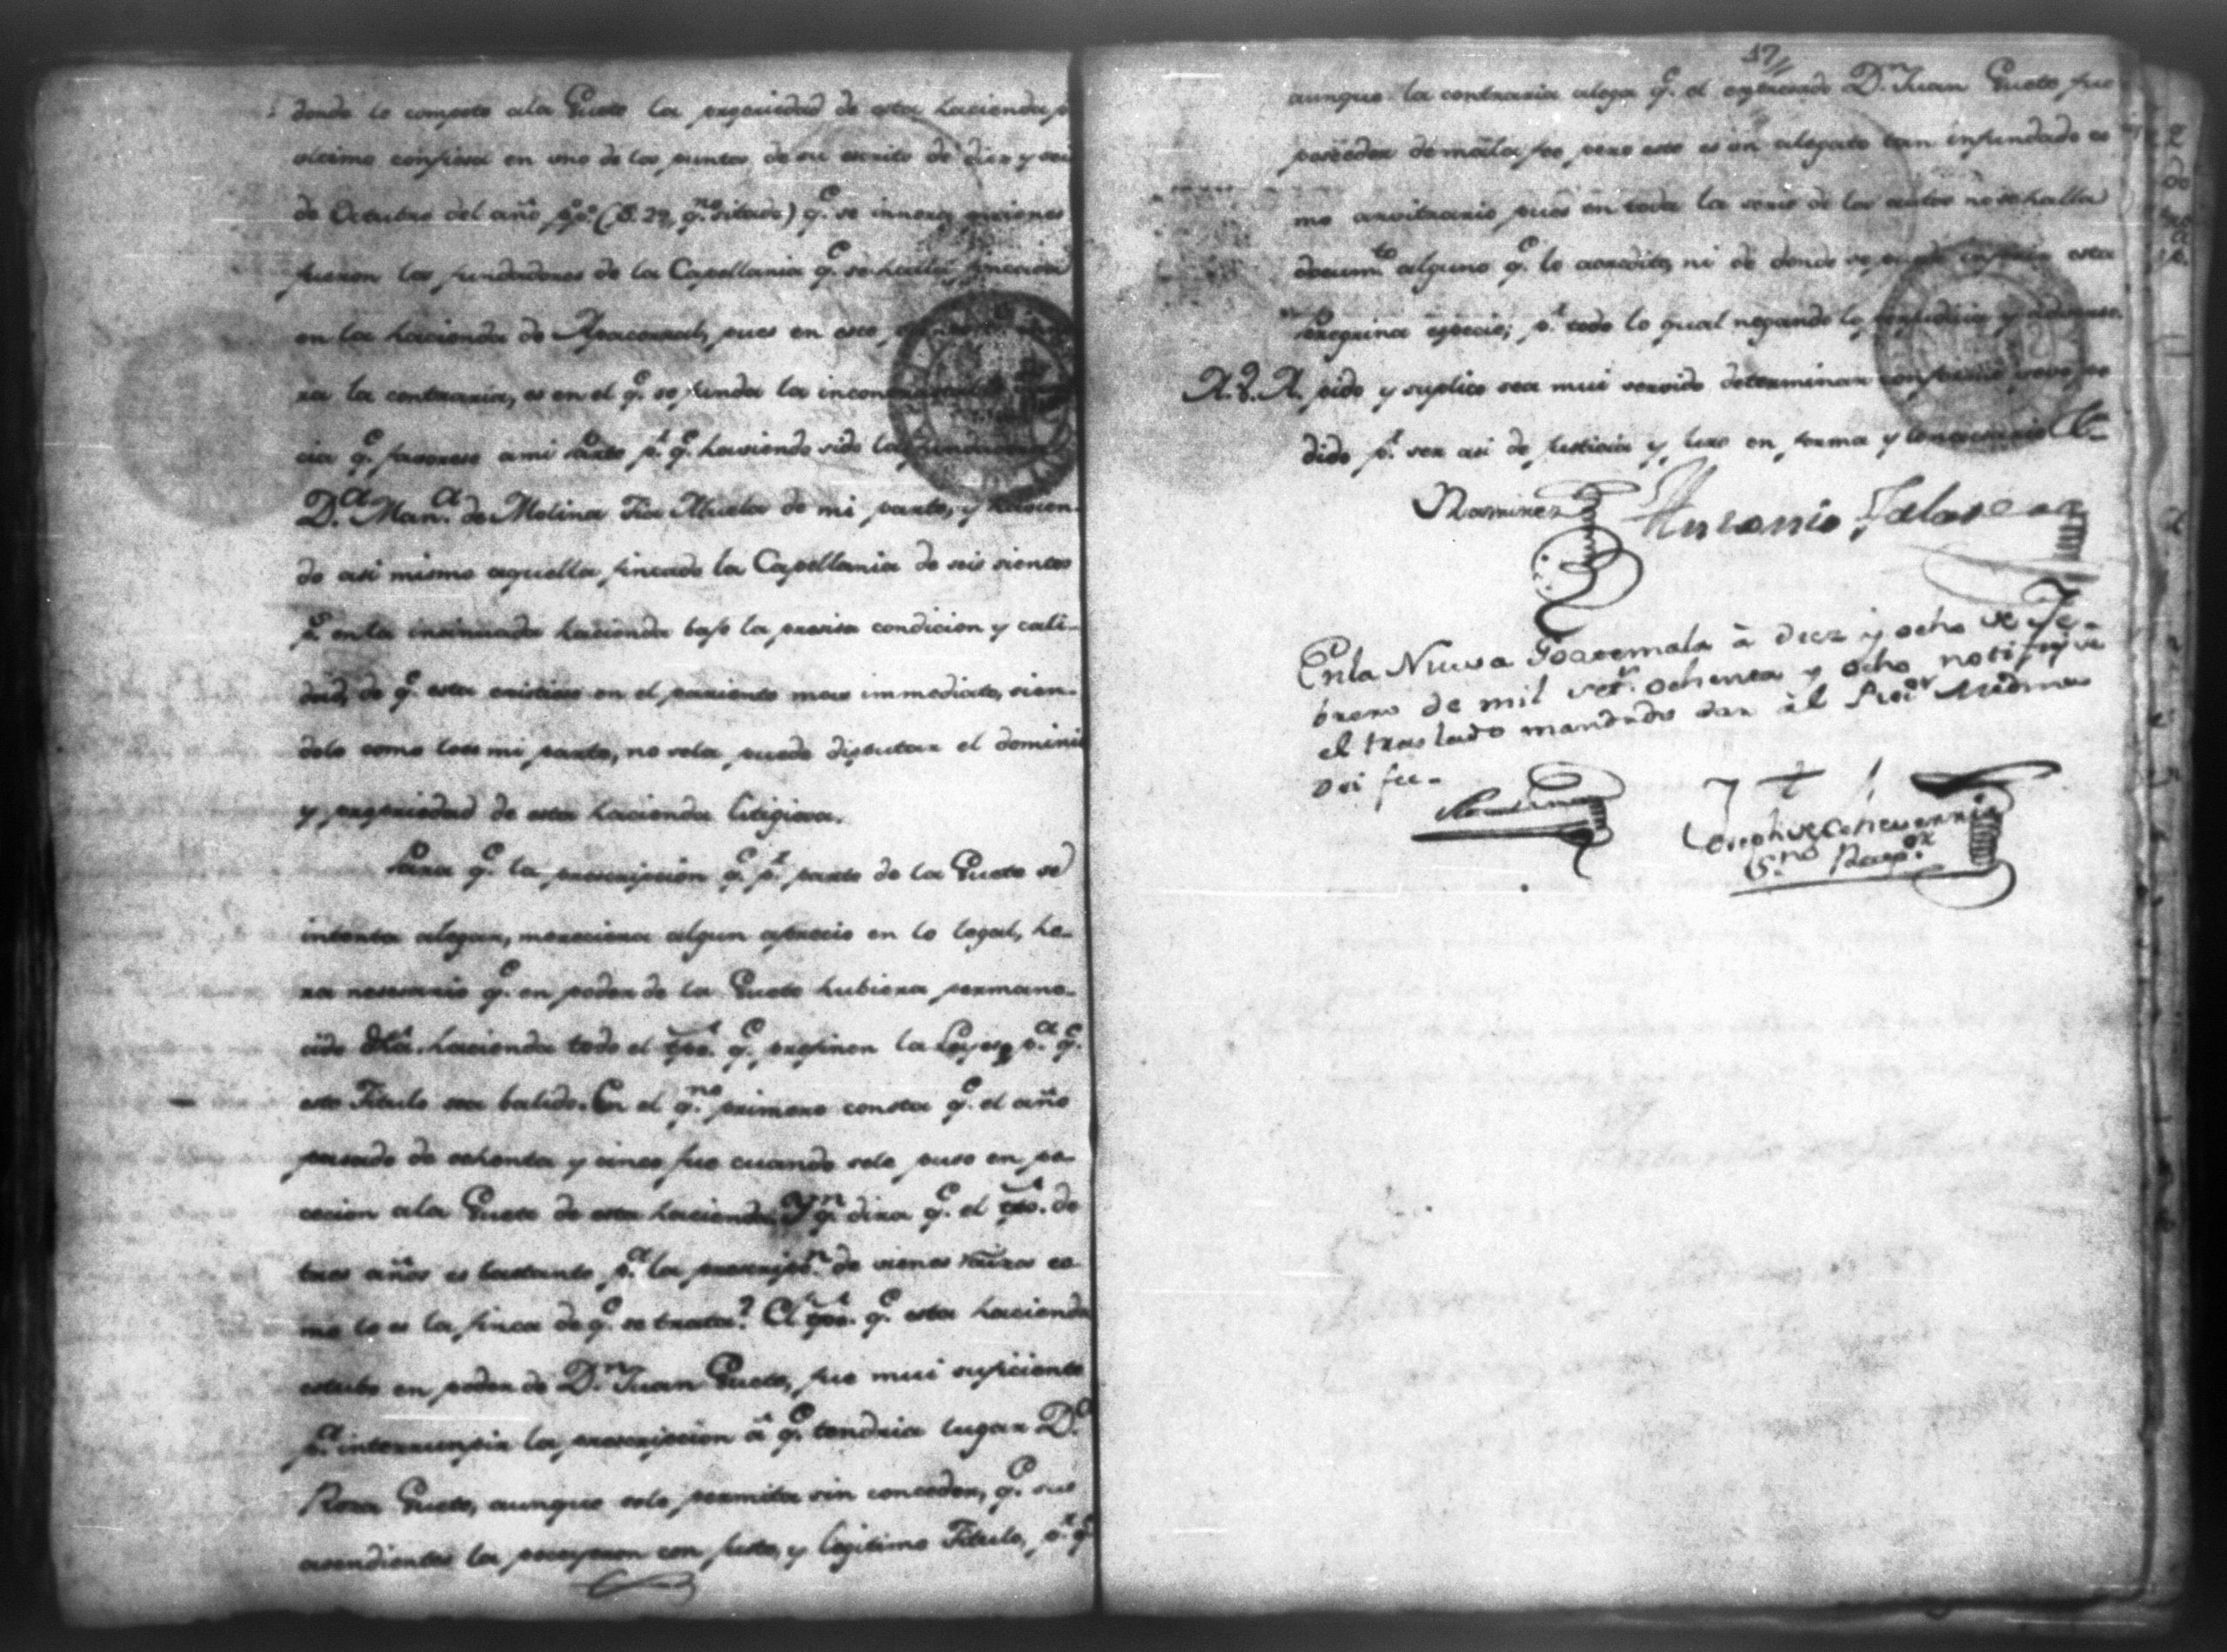 donde le compete ala Cueto la propriedad de esta hacienda
ultimo confiesa en uno de los puntos de su escrito de diez y seis
de Octubre del año p.º p.º (f. 29, q.no sitado) q.e
fueron los fundadores de la Capellania q.e se halla fincada
en la hacienda de pues en este
ra la contraria, es en el q.e se funda la
cia q.e favorese ami Parte p.r q.e haviendo sido la fundadora
D.a Man.a de Molina Tia Abuela de mi parte, y havien-
do asi mismo aquella fincado la Capellania de seis sientos
p.s enla insinuada hacienda bajo la presisa condicion y cali-
dad, de q.e esta existiese en el pariente mas immediato, sien-
dolo como loes mi parte, no sela puede disputar el dominio
y propriedad de esta hacienda litigiosa.
Para q.e la prescripcion q.e p.r parte de la Cueto se
intenta alegar, mereciera algun apresio en lo legal, he-
ra nesesario q.e en poder de la Cueto hubiera permane-
cido dha. hacienda todo el tpo. q.e prefinen la Leyes p.a q.e
este Titulo sea balido. En el q.no primero consta q.e el año
pasado de ochenta y cinco fue cuando sele puso en po-
cecion ala Cueto de esta hacienda. Y q.n dira q.e el tpo. de
tres años es bastante p.a la prescripc.n de vienes raizes co-
mo lo es la finca de q.e se trata? El tpo. q.e esta hacienda
estubo en poder de D.n Juan Cueto, fue mui suficiente
p.a interrumpir la prescripcion á q.e tendria lugar D.a
Rosa Cueto, aunque sele permita sin conceder, q.e sus
asendientes la poceyeron con justo, y legitimo Titulo, p.r q.e
17
aunque la contraria alega q.e el expresado D.n Juan Cueto fue
poseedor de mala fee pero este es un alegato tan infundado co-
mo arvitrario pues en toda la serie de los autos no se halla
docum.to alguno q.e lo acredite, ni de donde se puede inferir esta
peregrina especie; p.r todo lo qual negando lo perjudicial y adverso.
A. V. A. pido y suplico sea mui servido determinar como llevo pe-
dido p.r ser asi de justicia y juro en forma y lo nesesario &.a
Ramirez Antonio
Enla Nueva Goatemala à diez y ocho de Fe-
brero de mil set.s ochenta y ocho notifiqué
el traslado mandado dar àl Pro.r Medina
doi fee-
Medina
de Echeverria
S.no Recep.or